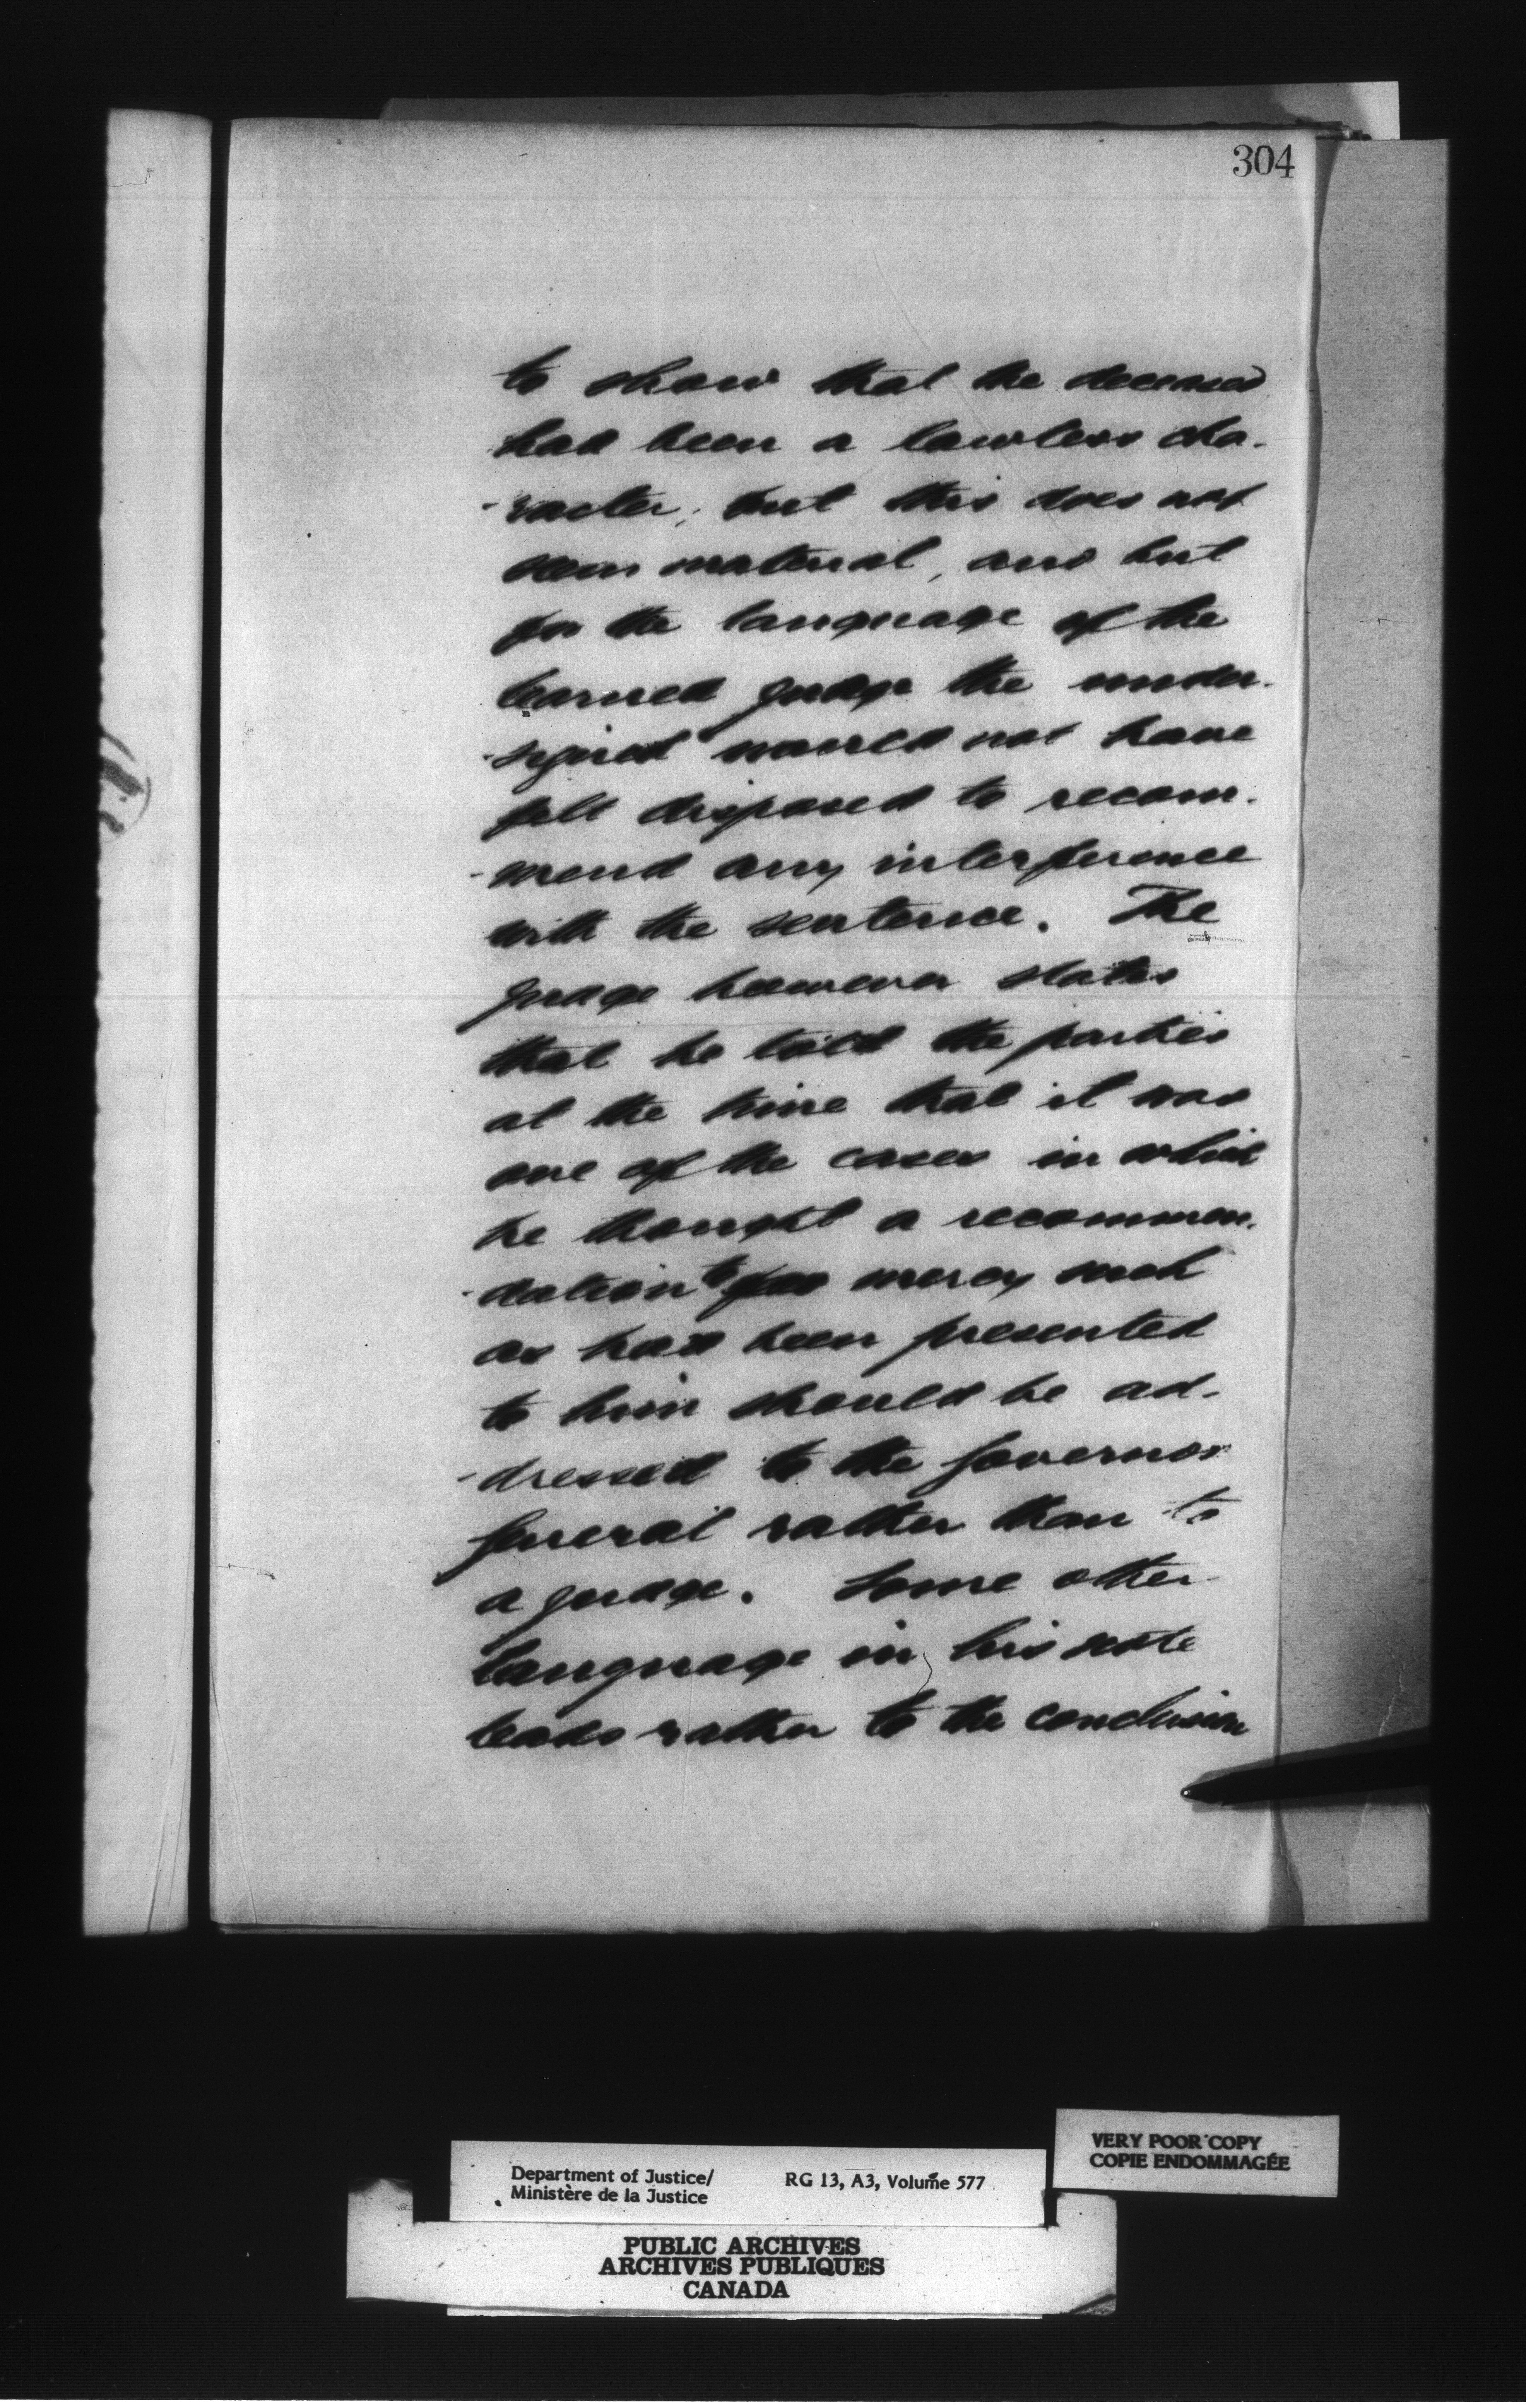 304
to show that the deceased
had been a lawless cha-
-racter; but this does not
seem material, and but
for the language of the
learned judge the under-
-signed would not have
felt disposed to recom-
-mend any interference
with the sentence. The
judge however states
that he told the parties
at the time that it was
one of the cases in which
he thought a recommen-
-dation to for mercy such
as had been presented
to him should be ad-
-dressed to the Governor
General rather than to
a judge. Some other
language in his note
leads rather to the conclusion
VERY POOR COPY
COPIE ENDOMMAGÉE
Department of Justice/ RG 13, A3, Volume 577
Ministère de la Justice
PUBLIC ARCHIVES
ARCHIVES PUBLIQUES
CANADA